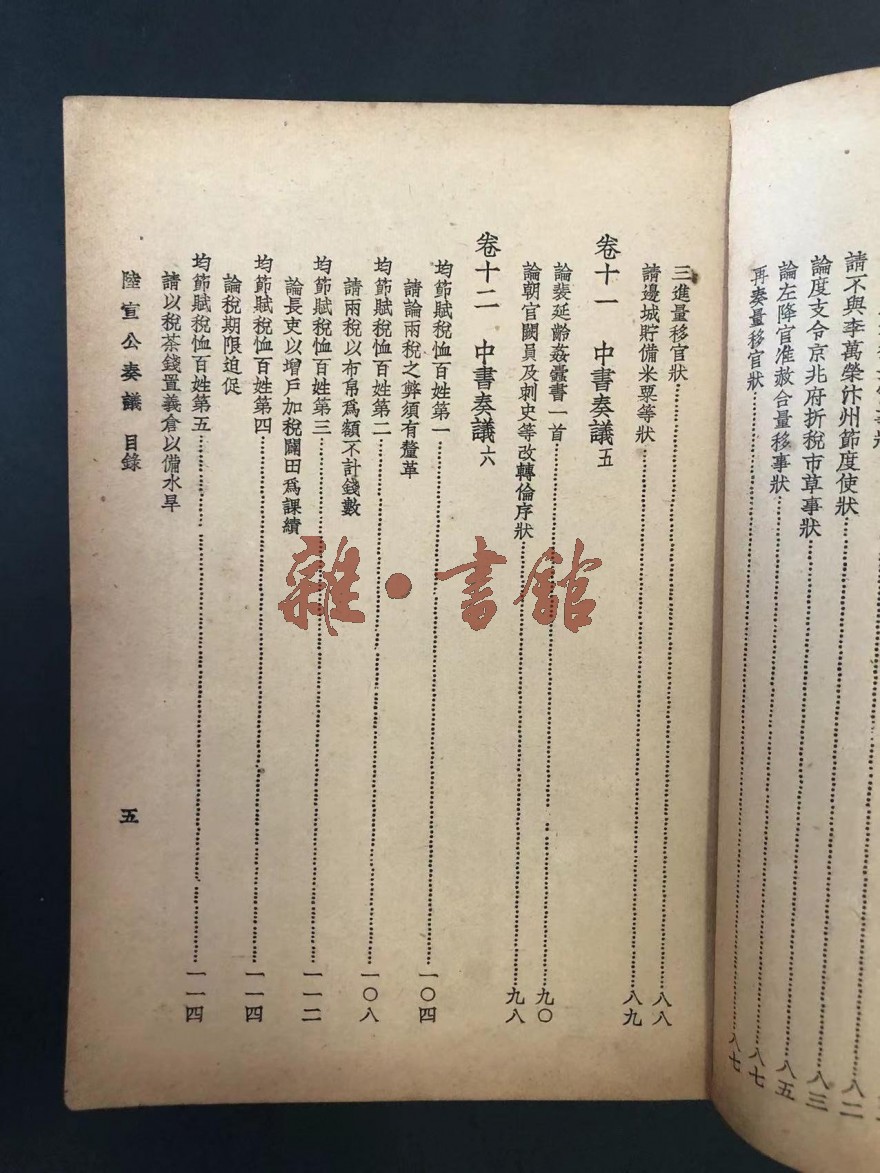 狀……八二
請不與李萬榮汴州節度使狀……八三
論度支令京兆府折稅市草事狀……八五
論左降官准赦合量移事狀……八七
再奏量移官狀……八七
三進量移官狀……八八
請邊城貯備米粟等狀……八九
卷十一 中書奏議五
論裴延齡姦蠹書一首……九〇
論朝官闕員及刺史等改轉倫序狀……九八
卷十二 中書奏議六
均節賦稅恤百姓第一……一〇四
請論兩稅之弊須有釐革
均節賦稅恤百姓第二……一〇八
請兩稅以布帛爲額不計錢數
均節賦稅恤百姓第三……一一二
論長吏以增戶加稅闢田爲課績
均節賦稅恤百姓第四……一一四
論稅期限迫促
均節賦稅恤百姓第五……一一四
請以稅茶錢置義倉以備水旱
陸宣公奏議 目錄
五
雜·書館